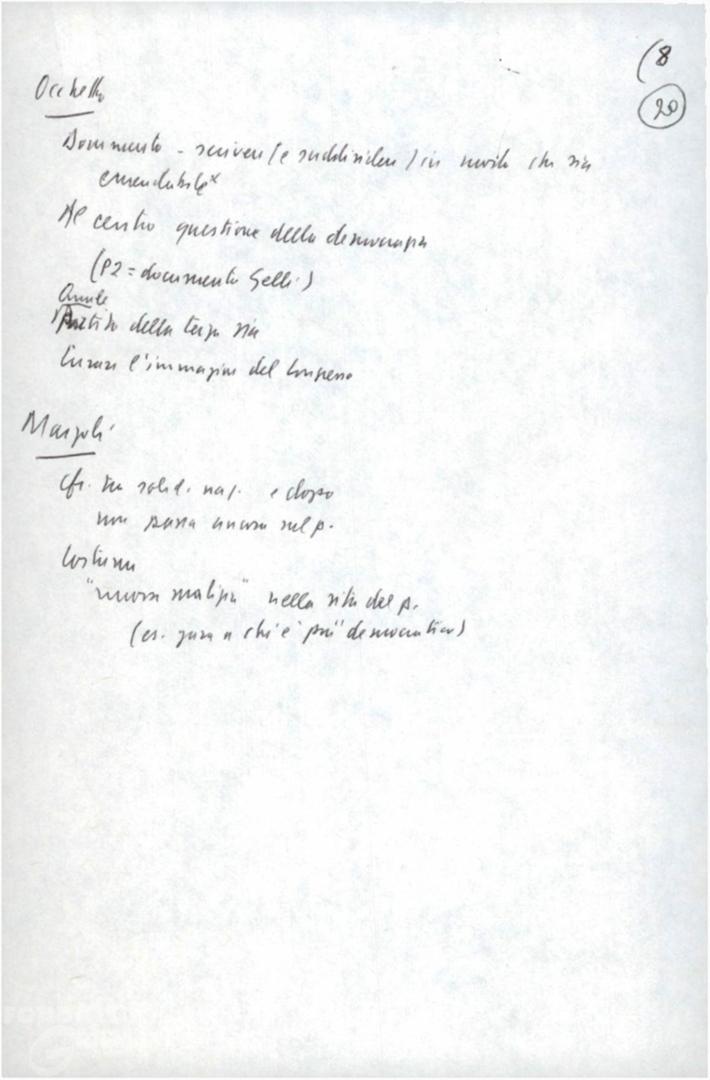 (8
20
Occhetto
Documento - scrivere (e suddividere) in modo che sia
emendabile x
Al centro questione della democrazia
(P2 = documento Gelli)
Quale
Partito della terza via
Curare l'immagine del Congresso
cfr. su solid. naz. e dopo
non passa ancora nel p.
Costume
"nuova malizia" nella vita del p.
(es. gara a chi è "più" democratico)